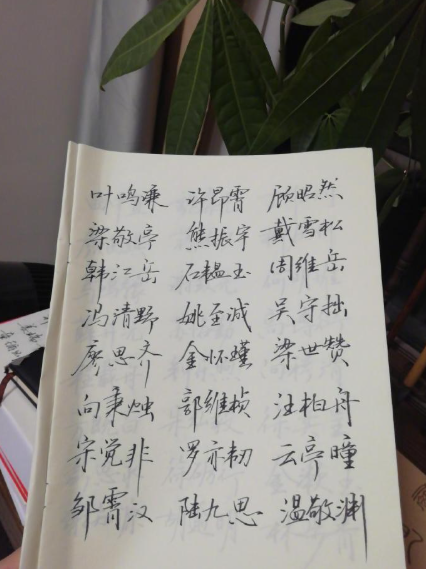 叶鸣濂 许昂霄 顾昭然
梁敬亭 熊振宇 戴雪松
韩江岳 石韫玉 周维岳
冯清野 姚至诚 吴守拙
廖思齐 金怀瑾 梁世赞
向秉烛 郭维桢 汪柏舟
宗觉非 罗亦韧 云亭瞳
邹霄汉 陆九思 温敬渊